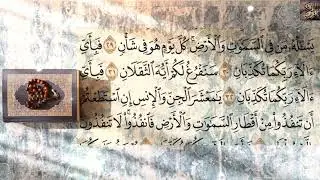 يَسْـَٔلُهُۥ مَن فِى ٱلسَّمَٰوَٰتِ وَٱلْأَرْضِ ۚ كُلَّ يَوْمٍ هُوَ فِى شَأْنٍ ٢٩ فَبِأَىِّ
ءَالَآءِ رَبِّكُمَا تُكَذِّبَانِ ٣٠ سَنَفْرُغُ لَكُمْ أَيُّهَ ٱلثَّقَلَانِ ٣١ فَبِأَىِّ
ءَالَآءِ رَبِّكُمَا تُكَذِّبَانِ ٣٢ يَٰمَعْشَرَ ٱلْجِنِّ وَٱلْإِنسِ إِنِ ٱسْتَطَعْتُمْ
أَن تَنفُذُوا۟ مِنْ أَقْطَارِ ٱلسَّمَٰوَٰتِ وَٱلْأَرْضِ فَٱنفُذُوا۟ ۚ لَا تَنفُذُونَ